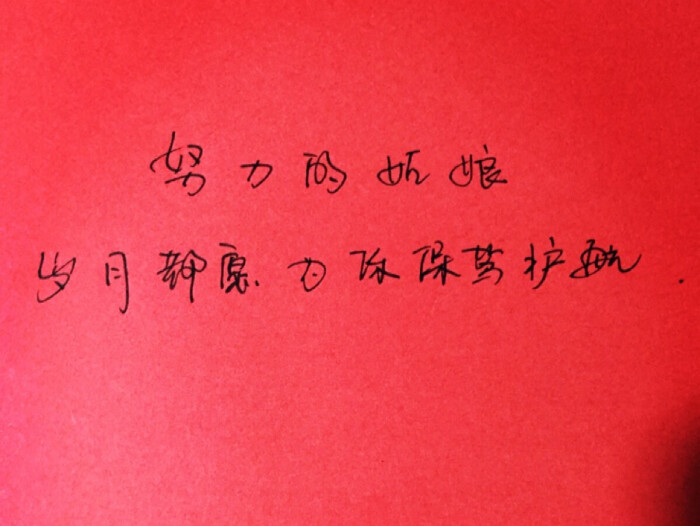 努力的姑娘
岁月都愿为你保驾护航.